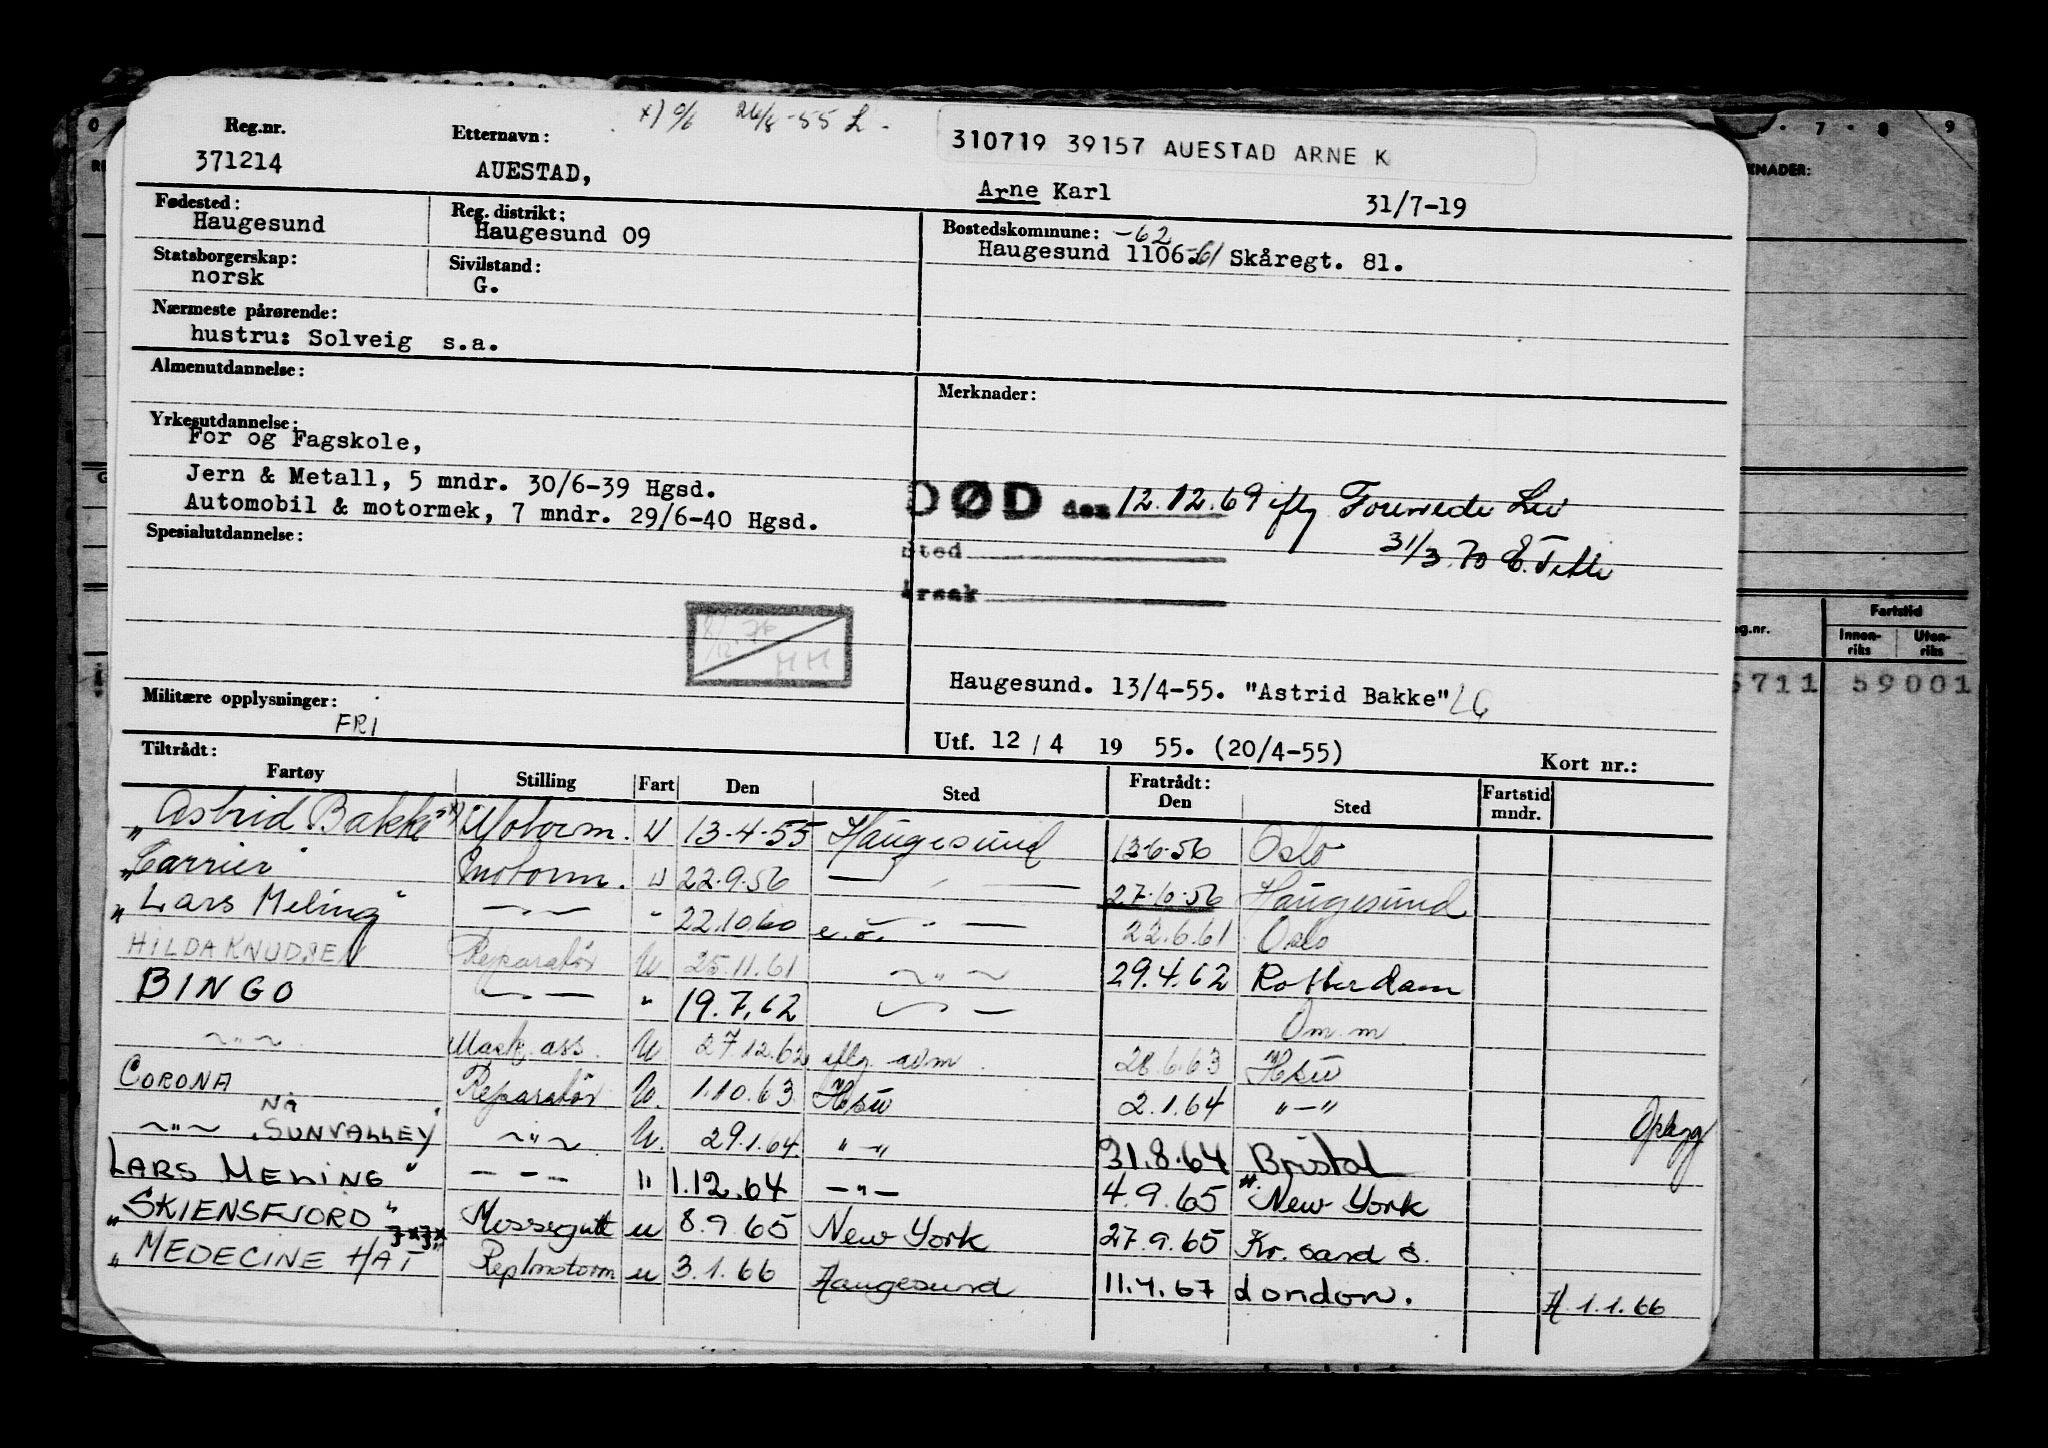 x) 26/8-55 L -
310719 39157 AUESTAD ARNE K
Reg.nr. Etternavn:
371214 AUESTAD, Arne Karl 31/7-19
Fødested: Reg. distrikt: Bostedskommune: -62
Haugesund Haugesund 09 Haugesund 1106-61 Skåregt. 81.
Statsborgerskap: Sivilstand:
norsk G.
Nærmeste pårørende:
hustru: Solveig s.a.
Almenutdannelse: Merknader:
Yrkesutdannelse:
For og Fagskole,
Jern & Metall, 5 mndr. 30/6-39 Hgsd.
Automobil & motormek, 7 mndr. 29/6-40 Hgsd.
DØD den 12.12.69 iflg
31/3.70
Spesialutdannelse:
Sted
Årsak
HH
Haugesund. 13/4-55. "Astrid Bakke" LG
Militære opplysninger:
FRI
Utf. 12/4 19 55. (20/4-55) Kort nr.:
Tiltrådt: Fratrådt:
Fartøy Stilling Fart Den Sted Den Sted Fartstid mndr.
"Astrid Bakke" x) Motorm. U 13-4-55 Haugesund 13-6-56 Oslo
"Carrier" Motorm. U 22.9.56 — " — 27-10-56 Haugesund
"Lars Meling" — " — " 22.10.60 e.o. " — 22.6.61 Oslo
HILDA KNUDSEN Reparatør U 25.11.61 — " — 29.4.62 Rotterdam
BINGO — " — " 19.7.62 — " — Om.m.
— " — Mask. ass. U 27.12.62 iflg. avm. 28.6.63 Hsu
CORONA Reparatør U. 1.10.63 Hsu 2.1.64 "—"
— " — Nå "SUNVALLEY" — " — U. 29.1.64 "—" 31.8.64 Bristol Opbygg
LARS MELING" — - — " 1.12.64 — " — 4.9.65 New York
"SKIENSFJORD" Messegutt u 8.9.65 New York 27.9.65 Kr. sand S.
"MEDECINE HAT" Rep/motorm u 3.1.66 Haugesund 11.4.67 London. H 1.1.66
0 7 · 8 9
KNADER:
g.nr. Fartstid
Innen-riks Uten-riks
5711 59001